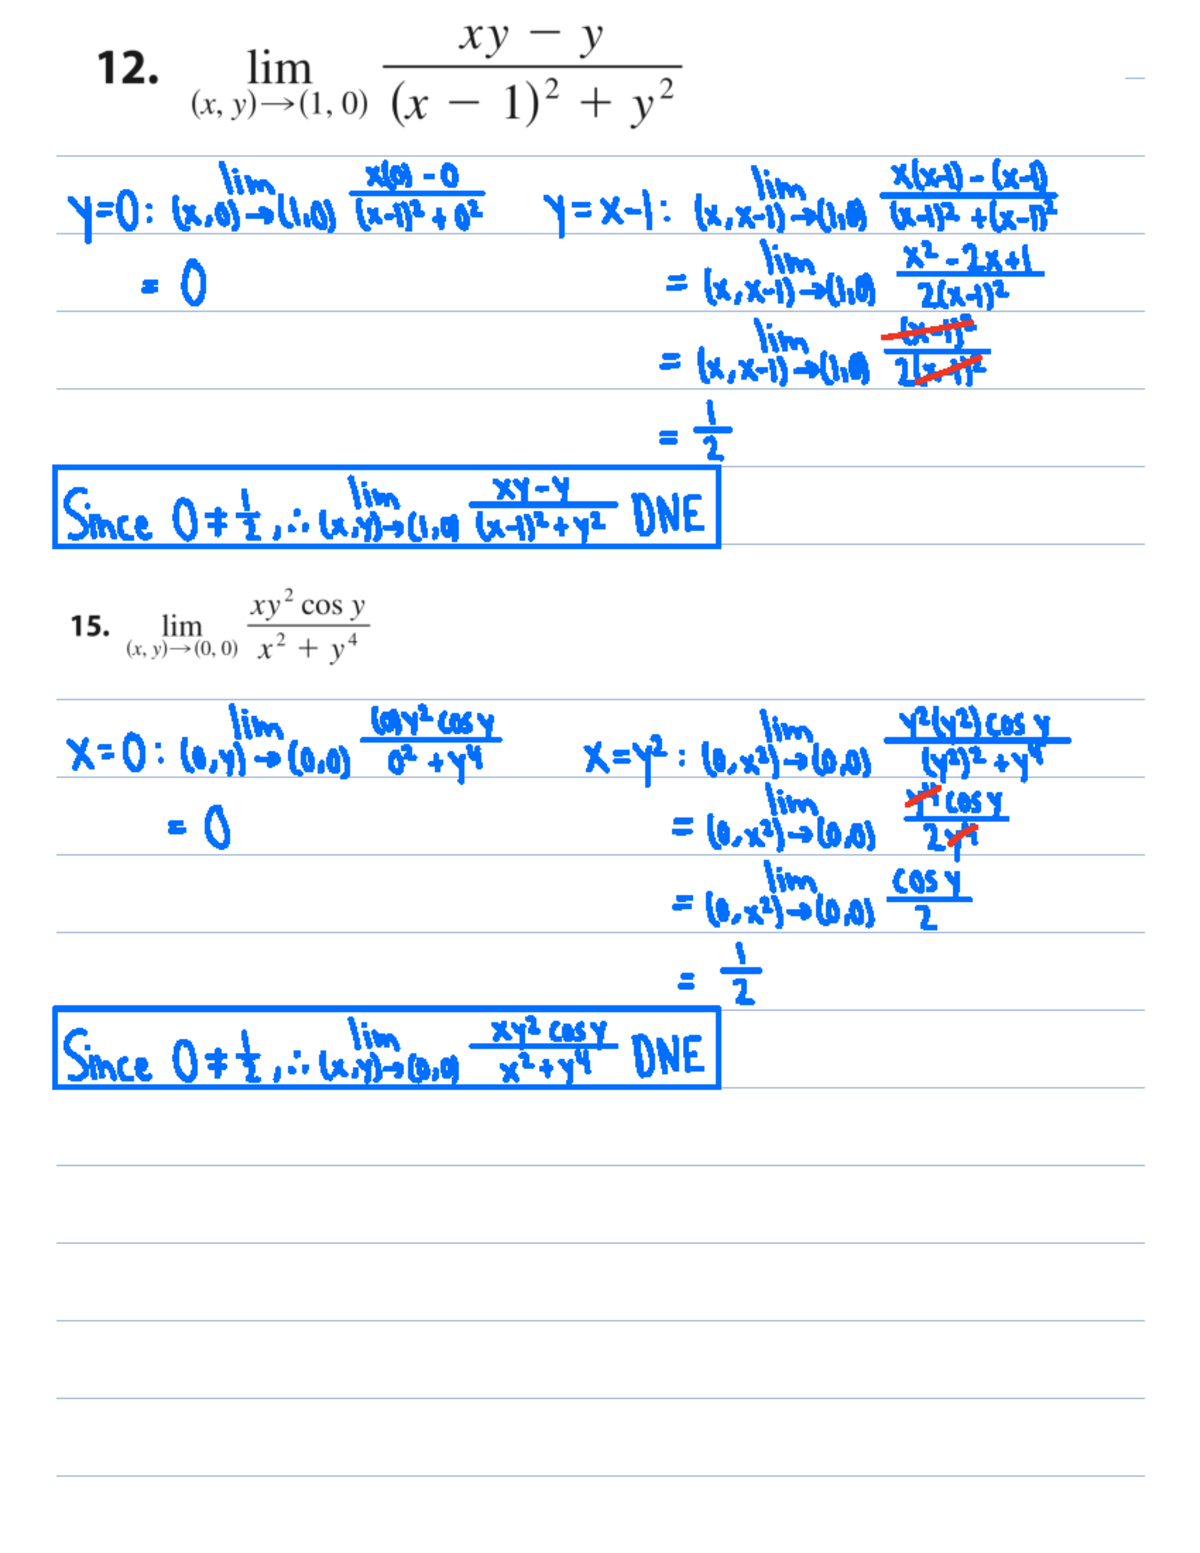 12. lim (x, y)→(1, 0) xy − y / (x − 1)² + y²
y=0: lim (x,0)→(1,0) x(0) - 0 / (x-1)² + 0²
= 0
y = x-1: lim (x,x-1)→(1,0) x(x-1) - (x-1) / (x-1)² + (x-1)²
= lim (x,x-1)→(1,0) x² - 2x+1 / 2(x-1)²
= lim (x,x-1)→(1,0) (x-1)² / 2(x-1)²
= 1/2
Since 0 ≠ 1/2, ∴ lim (x,y)→(1,0) xy-y / (x-1)²+y² DNE
15. lim (x, y)→(0, 0) xy² cos y / x² + y⁴
x=0: lim (0,y)→(0,0) (0)y² cos y / 0² + y⁴
= 0
x=y²: lim (0,x²)→(0,0) y²(y²) cos y / (y²)² + y⁴
= lim (0,x²)→(0,0) y⁴ cos y / 2y⁴
= lim (0,x²)→(0,0) cos y / 2
= 1/2
Since 0 ≠ 1/2, ∴ lim (x,y)→(0,0) xy² cos y / x²+y⁴ DNE